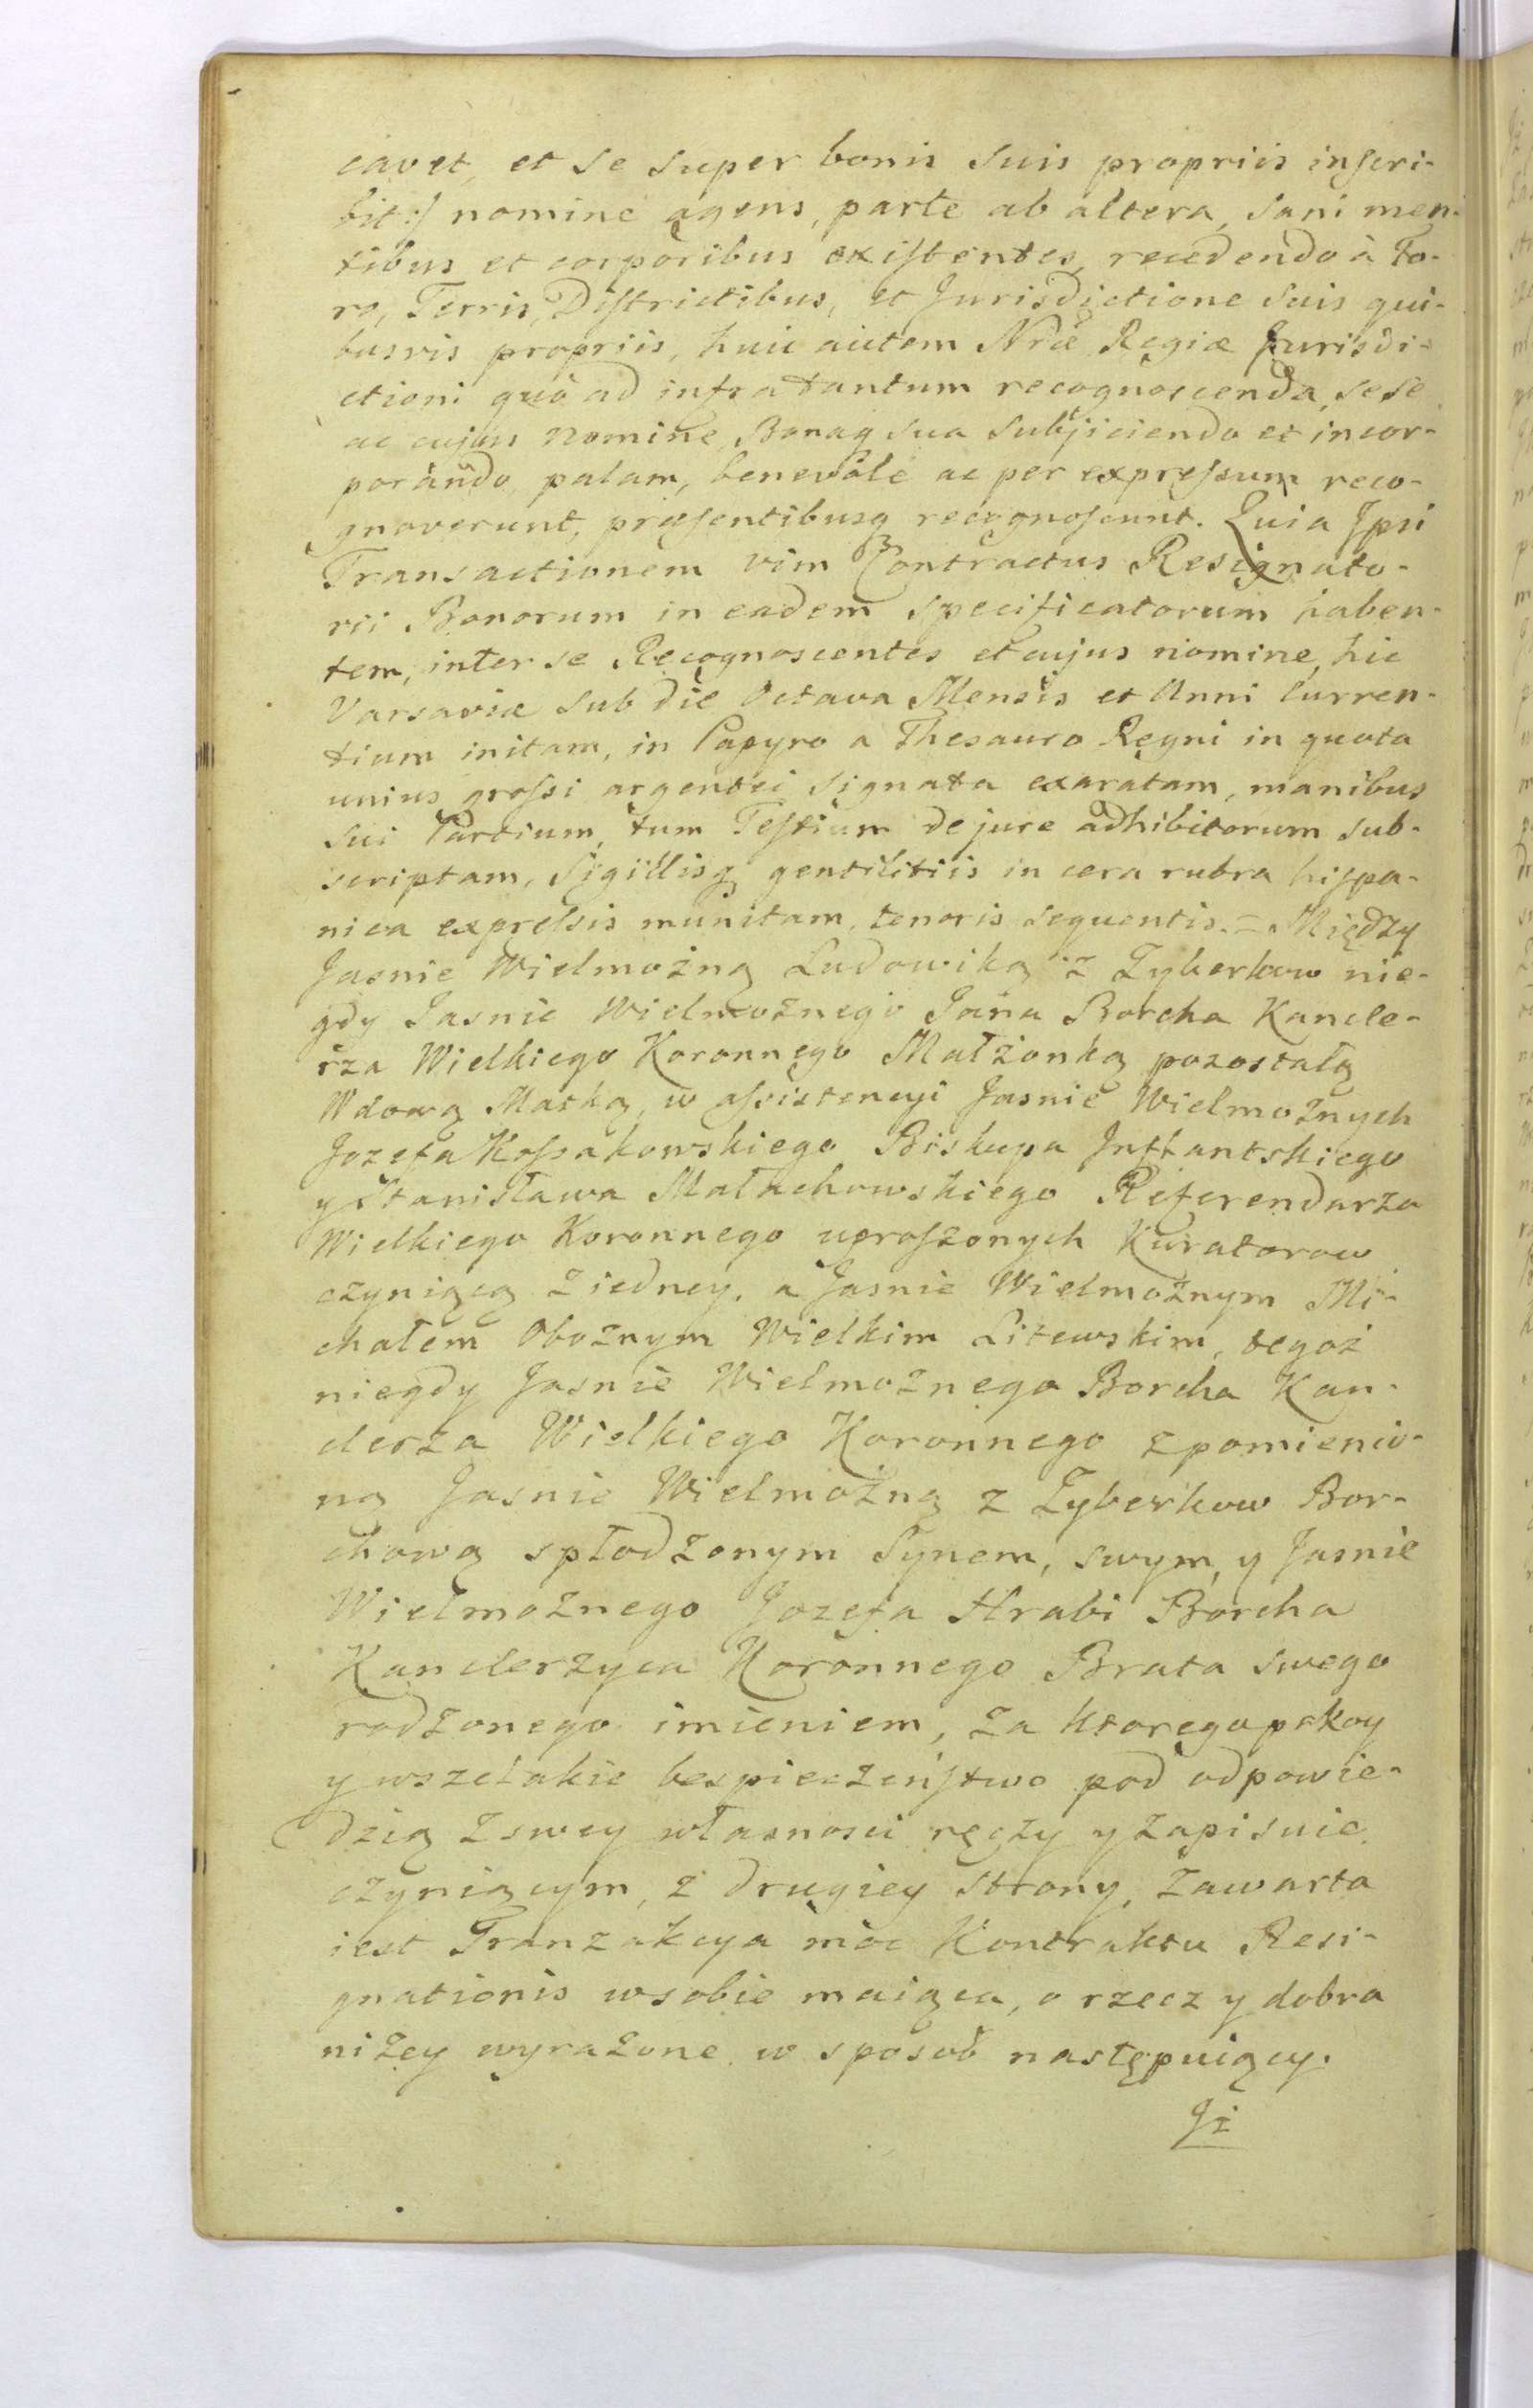 cavet, et se super bonis suis propriis inscri-
bit :/ nomine agens, parte ab altera, sani men-
tibus et corporibus existentes, recedendo à Fo-
ro, Terris, Districtibus, et Jurisdictione suis qui-
busvis propriis, huic autem Nræ Regiæ Jurisdi-
ctioni quò ad infra tantum recognoscenda, sese
ac cujus Nomine, Bonaq sua subjiciendo et incor-
porando, palam, benevole ac per expressum reco-
gnoverunt, præsentibusq recognoscunt. Quia Ipsi
Transactionem vim Contractus Resignato-
rii Bonorum in eadem specificatorum haben-
tem, inter se Recognoscentes et cujus nomine, hic
Varsaviæ sub die Octava Mensis et Anni curren-
tium initam, in Papyro a Thesauro Regni in quota
unius grossi argentei signata exaratam, manibus
sui Partium, tum Testium de jure adhibitorum sub-
scriptam, Sigillisq gentilitiis in cera rubra hispa-
nica expressis munitam, tenoris sequentis. = Między
Jasnie Wielmożną Ludowiką z Zyberkow nie-
gdy Jasnie Wielmożnego Jana Borcha Kancle-
rza Wielkiego Koronnego Małżonką pozostałą
Wdową Matką, w assistencyi Jasnie Wielmożnych
Jozefa Kossakowskiego Biskupa Inflantskiego
y Stanisława Małachowskiego Referendarza
Wielkiego Koronnego uproszonych Kuratorow
czyniącą z iedney, a Jasnie Wielmożnym Mi-
chałem Oboźnym Wielkim Litewskim, tegoż
niegdy Jasnie Wielmożnego Borcha Kan-
clerza Wielkiego Koronnego z pomienio-
ną Jasnie Wielmożną z Zyberkow Bor-
chową spłodzonym Synem, swym, y Jasnie
Wielmożnego Jozefa Hrabi Borcha
Kanclerzyca Koronnego Brata swego
rodzonego imieniem, za ktorego pokoy
y wszelakie bespieczeństwo pod odpowie-
dzią z swey własnosci ręczy y zapisuie
czyniącym, z drugiey strony, zawarta
iest Tranzakcya moc Kontraktu Resi-
gnationis w sobie maiąca, o rzecz y dobra
niżey wyrażone w sposob następuiący.
Iż